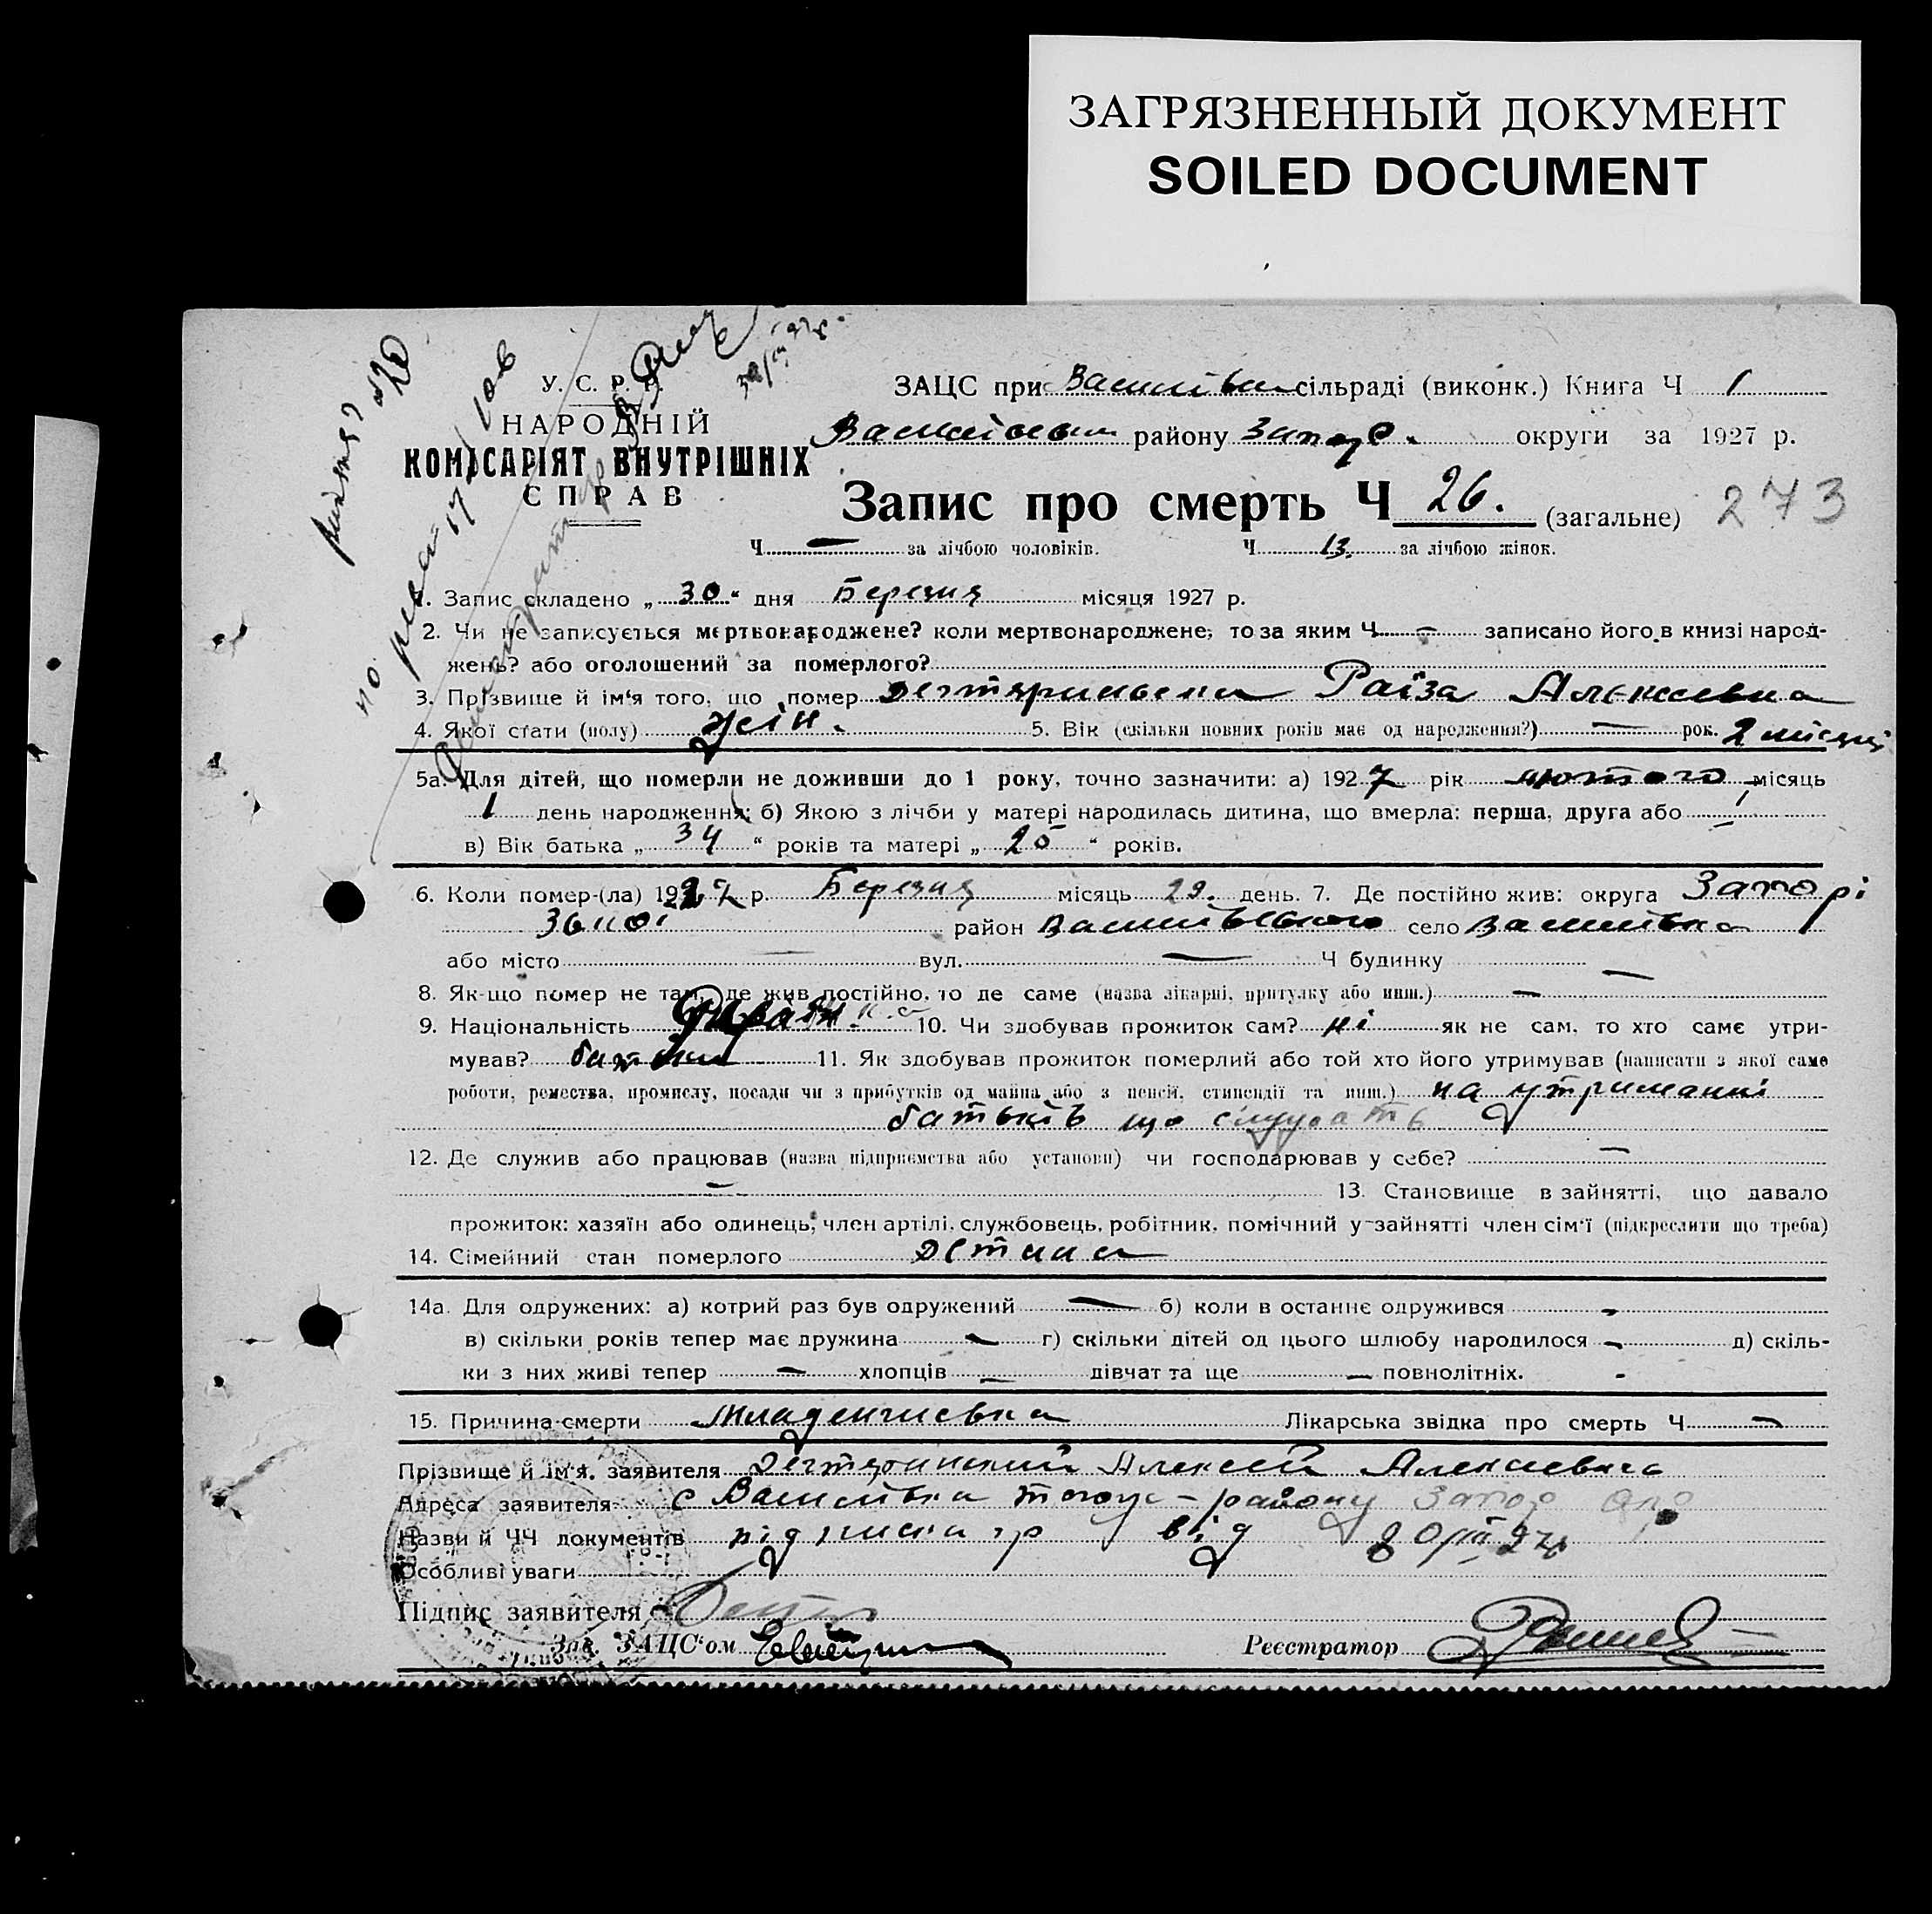 ЗАГРЯЗНЕННЫЙ ДОКУМЕНТ
SOILED DOCUMENT
У. С. Р. Р.
НАРОДНІЙ
КОМІСАРІЯТ ВНУТРІШНІХ
СПРАВ
ЗАЦС при сільраді (виконк.) Книга Ч 1
району округи за 1927 р.
Запис про смерть Ч 26. (загальне) 273
Ч — за лічбою чоловіків. Ч 13. за лічбою жінок.
1. Запис складено „ 30 “ дня Березня місяця 1927 р.
2. Чи не записується мертвонароджене? коли мертвонароджене, то за яким Ч — записано його в книзі народ-
жень? або оголошений за померлого?
3. Прізвище й ім'я того, що помер Раїза Алексевна
4. Якої стати (полу) жін. 5. Вік (скільки повних років має од народження?) — рок. 2 місяці
5а. Для дітей, що померли не доживши до 1 року, точно зазначити: а) 1927 рік лютого місяць
1 день народження; б) Якою з лічби у матері народилась дитина, що вмерла: перша, друга або
в) Вік батька „ 34 “ років та матері „ 25 “ років.
6. Коли помер-(ла) 1927 р. Березня місяць 29. день. 7. Де постійно жив: округа Запорі
зької район Василівського село Василівка
або місто — вул. — Ч будинку —
8. Як-що помер не там, де жив постійно, то де саме (назва лікарні, притулку або инш.) —
9. Національність 10. Чи здобував прожиток сам? ні як не сам, то хто саме утри-
мував? батьки 11. Як здобував прожиток померлий або той хто його утримував (написати з якої саме
роботи, ремества, промислу, посади чи з прибутків од майна або з пенсії, стипендії та инш.) на утриманні
батьків що
12. Де служив або працював (назва підприємства або установи) чи господарював у себе? —
— 13. Становище в зайнятті, що давало
прожиток: хазяїн або одинець, член артілі, службовець, робітник, помічний у зайнятті член сім'ї (підкреслити що треба)
14. Сімейний стан померлого детина
14а. Для одружених: а) котрий раз був одружений — б) коли в останнє одружився -
в) скільки років тепер має дружина — г) скільки дітей од цього шлюбу народилося - д) скіль-
ки з них живі тепер — хлопців — дівчат та ще — повнолітніх. -
15. Причина смерти Младенчиевка Лікарська звідка про смерть Ч —
Прізвище й ім'я заявителя Алексей Алексиевичь
Адреса заявителя с Василівка району Запор Окр
Назви й ЧЧ документів підписка гр від 30/III 27р
Особливі уваги
Підпис заявителя
Зав. ЗАЦС'ом Реєстратор